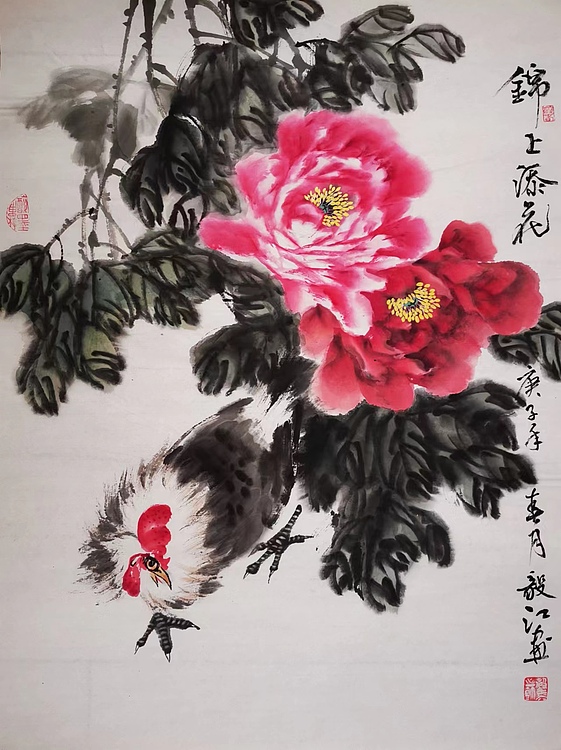 錦上添花
庚子年春月毅江画